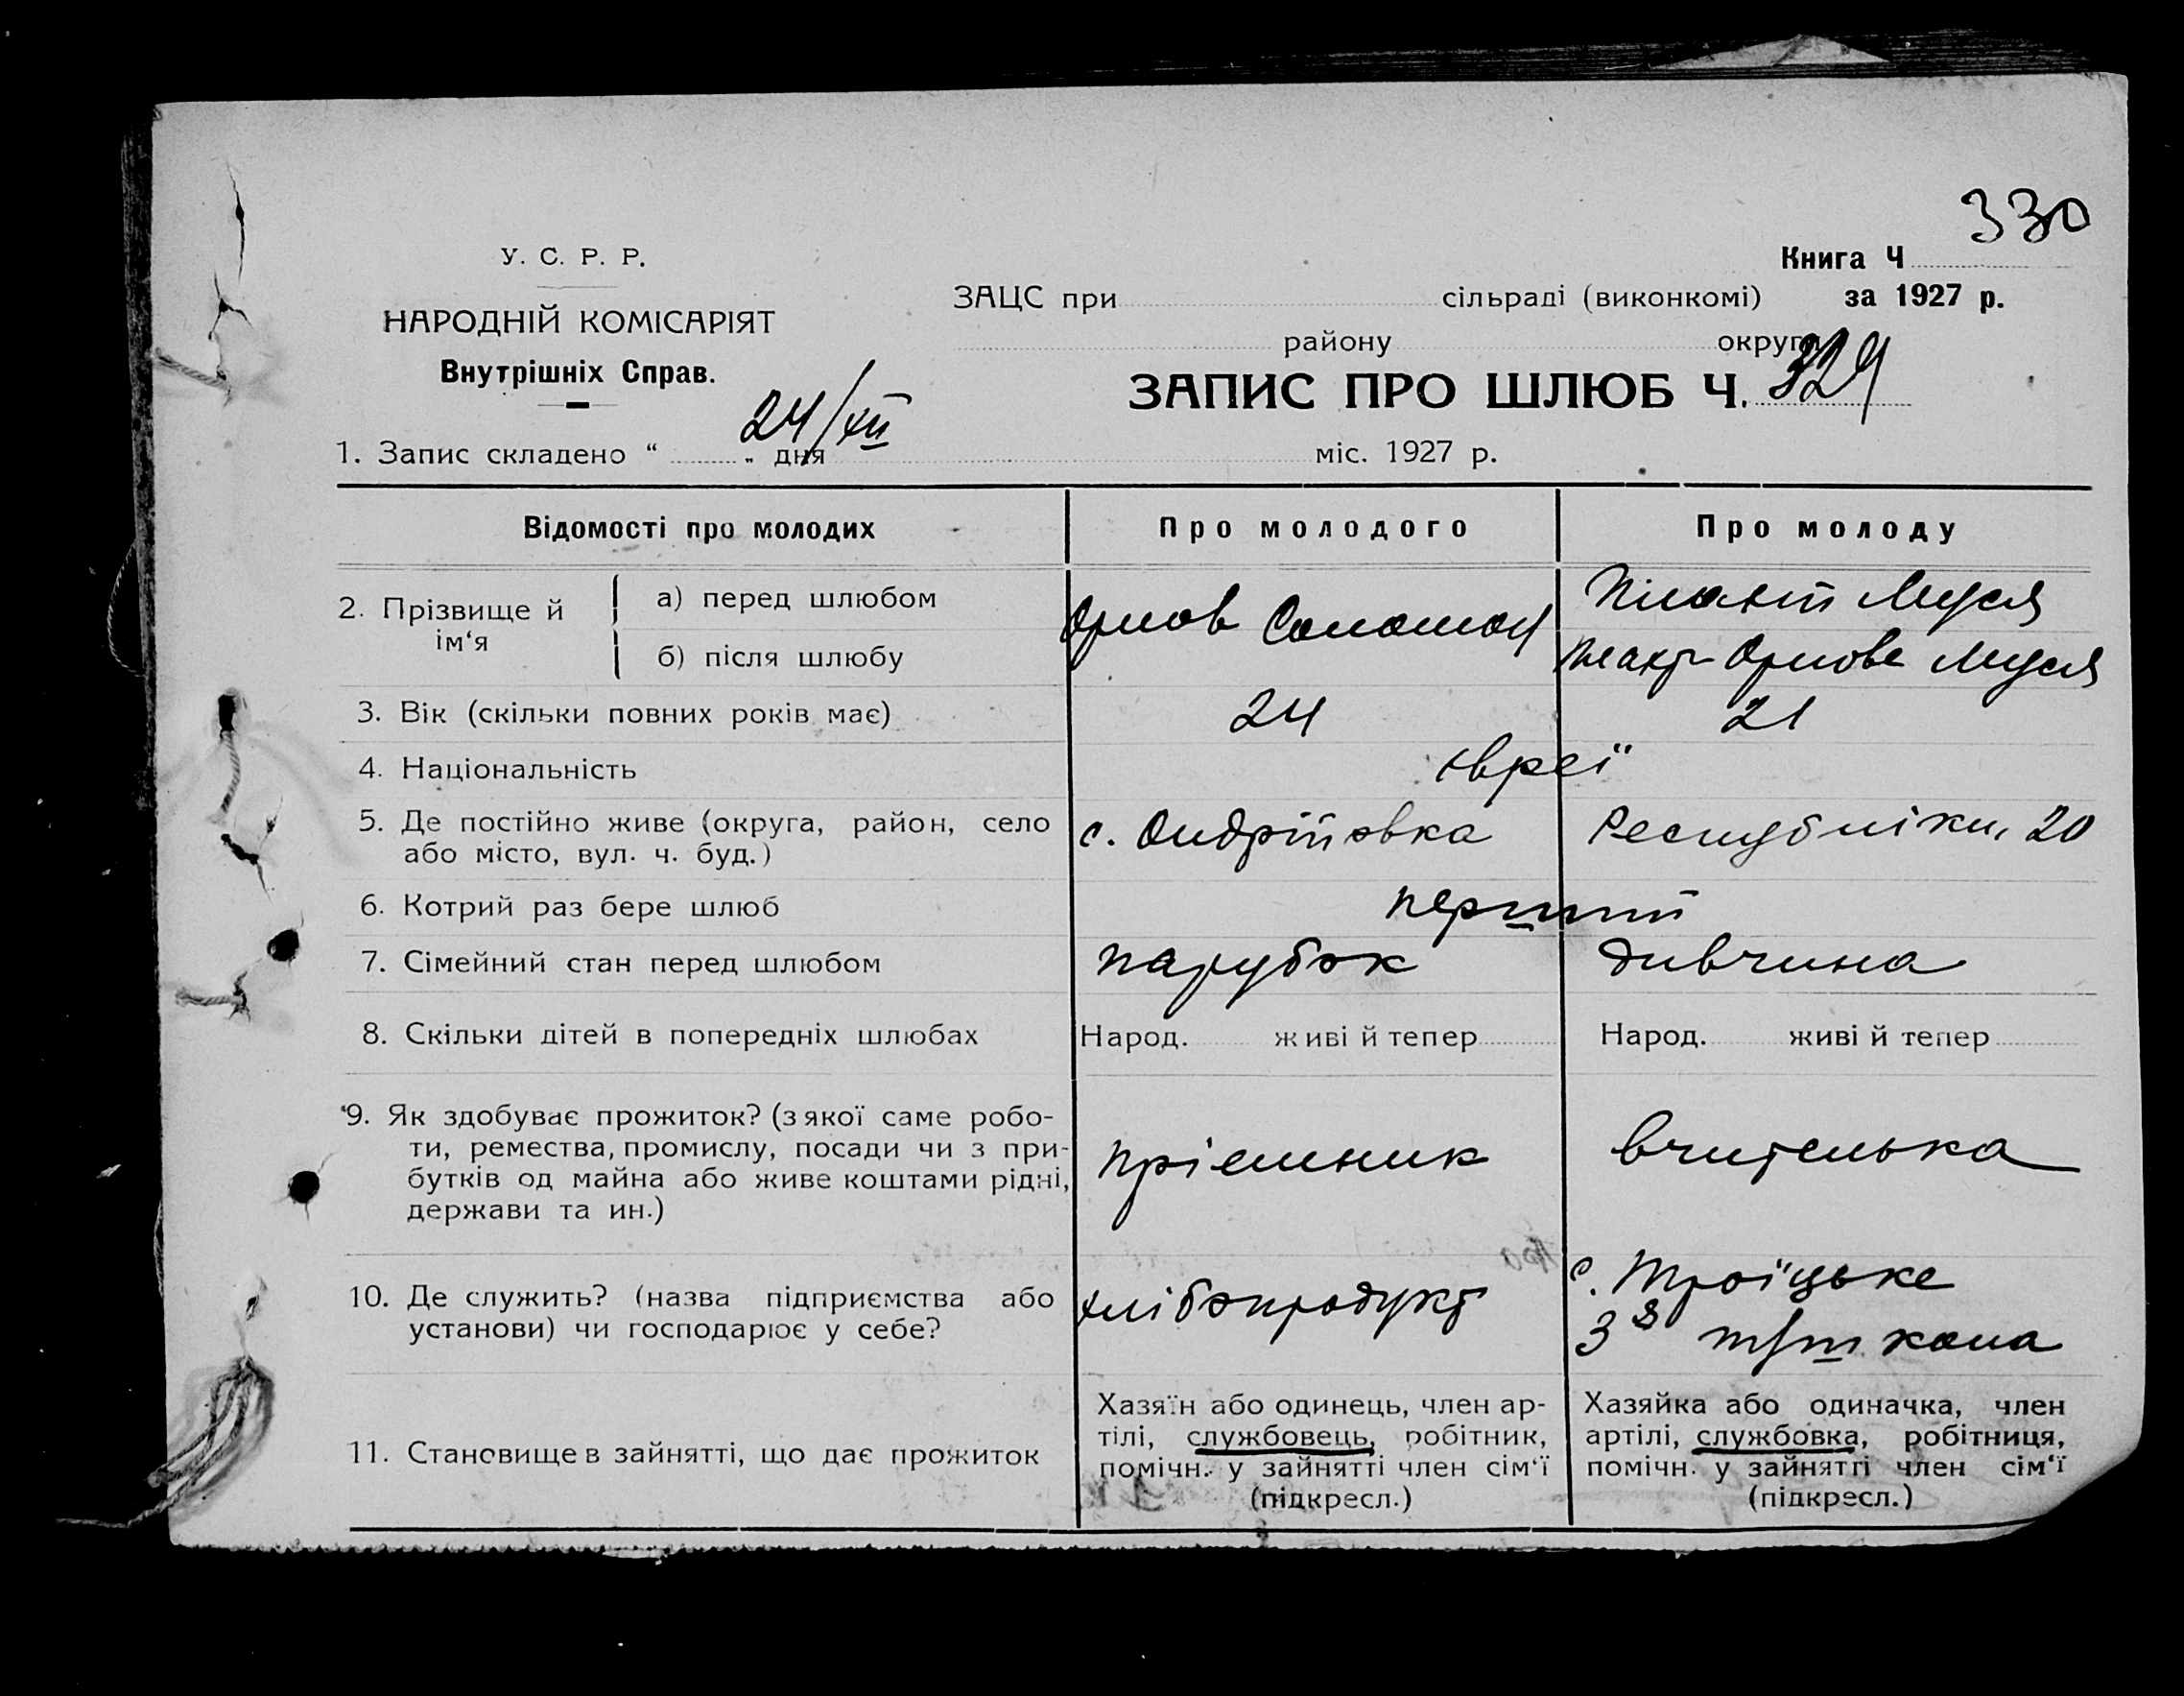 330
У. С. Р. Р.
Книга Ч
НАРОДНІЙ КОМІСАРІЯТ
ЗАЦС при сільраді (виконкомі) за 1927 р.
району округи
Внутрішніх Справ.
ЗАПИС ПРО ШЛЮБ Ч. 329
1. Запис складено “ „ дня 24/XII міс. 1927 р.
Відомості про молодих Про молодого Про молоду
2. Прізвище й ім‘я
а) перед шлюбом Орлов Соломон Муся
б) після шлюбу Орлова Муся
3. Вік (скільки повних років має) 24 21
4. Національність євреї
5. Де постійно живе (округа, район, село
або місто, вул. ч. буд.) с. Ондріївка Республіки, 20
6. Котрий раз бере шлюб перший
7. Сімейний стан перед шлюбом парубок дивчина
8. Скільки дітей в попередніх шлюбах Народ. живі й тепер Народ. живі й тепер
9. Як здобуває прожиток? (з якої саме робо-
ти, ремества, промислу, посади чи з при-
бутків од майна або живе коштами рідні,
держави та ин.)
приємник вчителька
10. Де служить? (назва підприємства або
установи) чи господарює у себе?
хлібопродукт с. Троїцьке
3я школа
11. Становище в зайнятті, що дає прожиток
Хазяїн або одинець, член ар-
тілі, службовець, робітник,
помічн. у зайнятті член сім‘ї
(підкресл.)
Хазяйка або одиначка, член
артілі, службовка, робітниця,
помічн. у зайнятті член сім‘ї
(підкресл.)